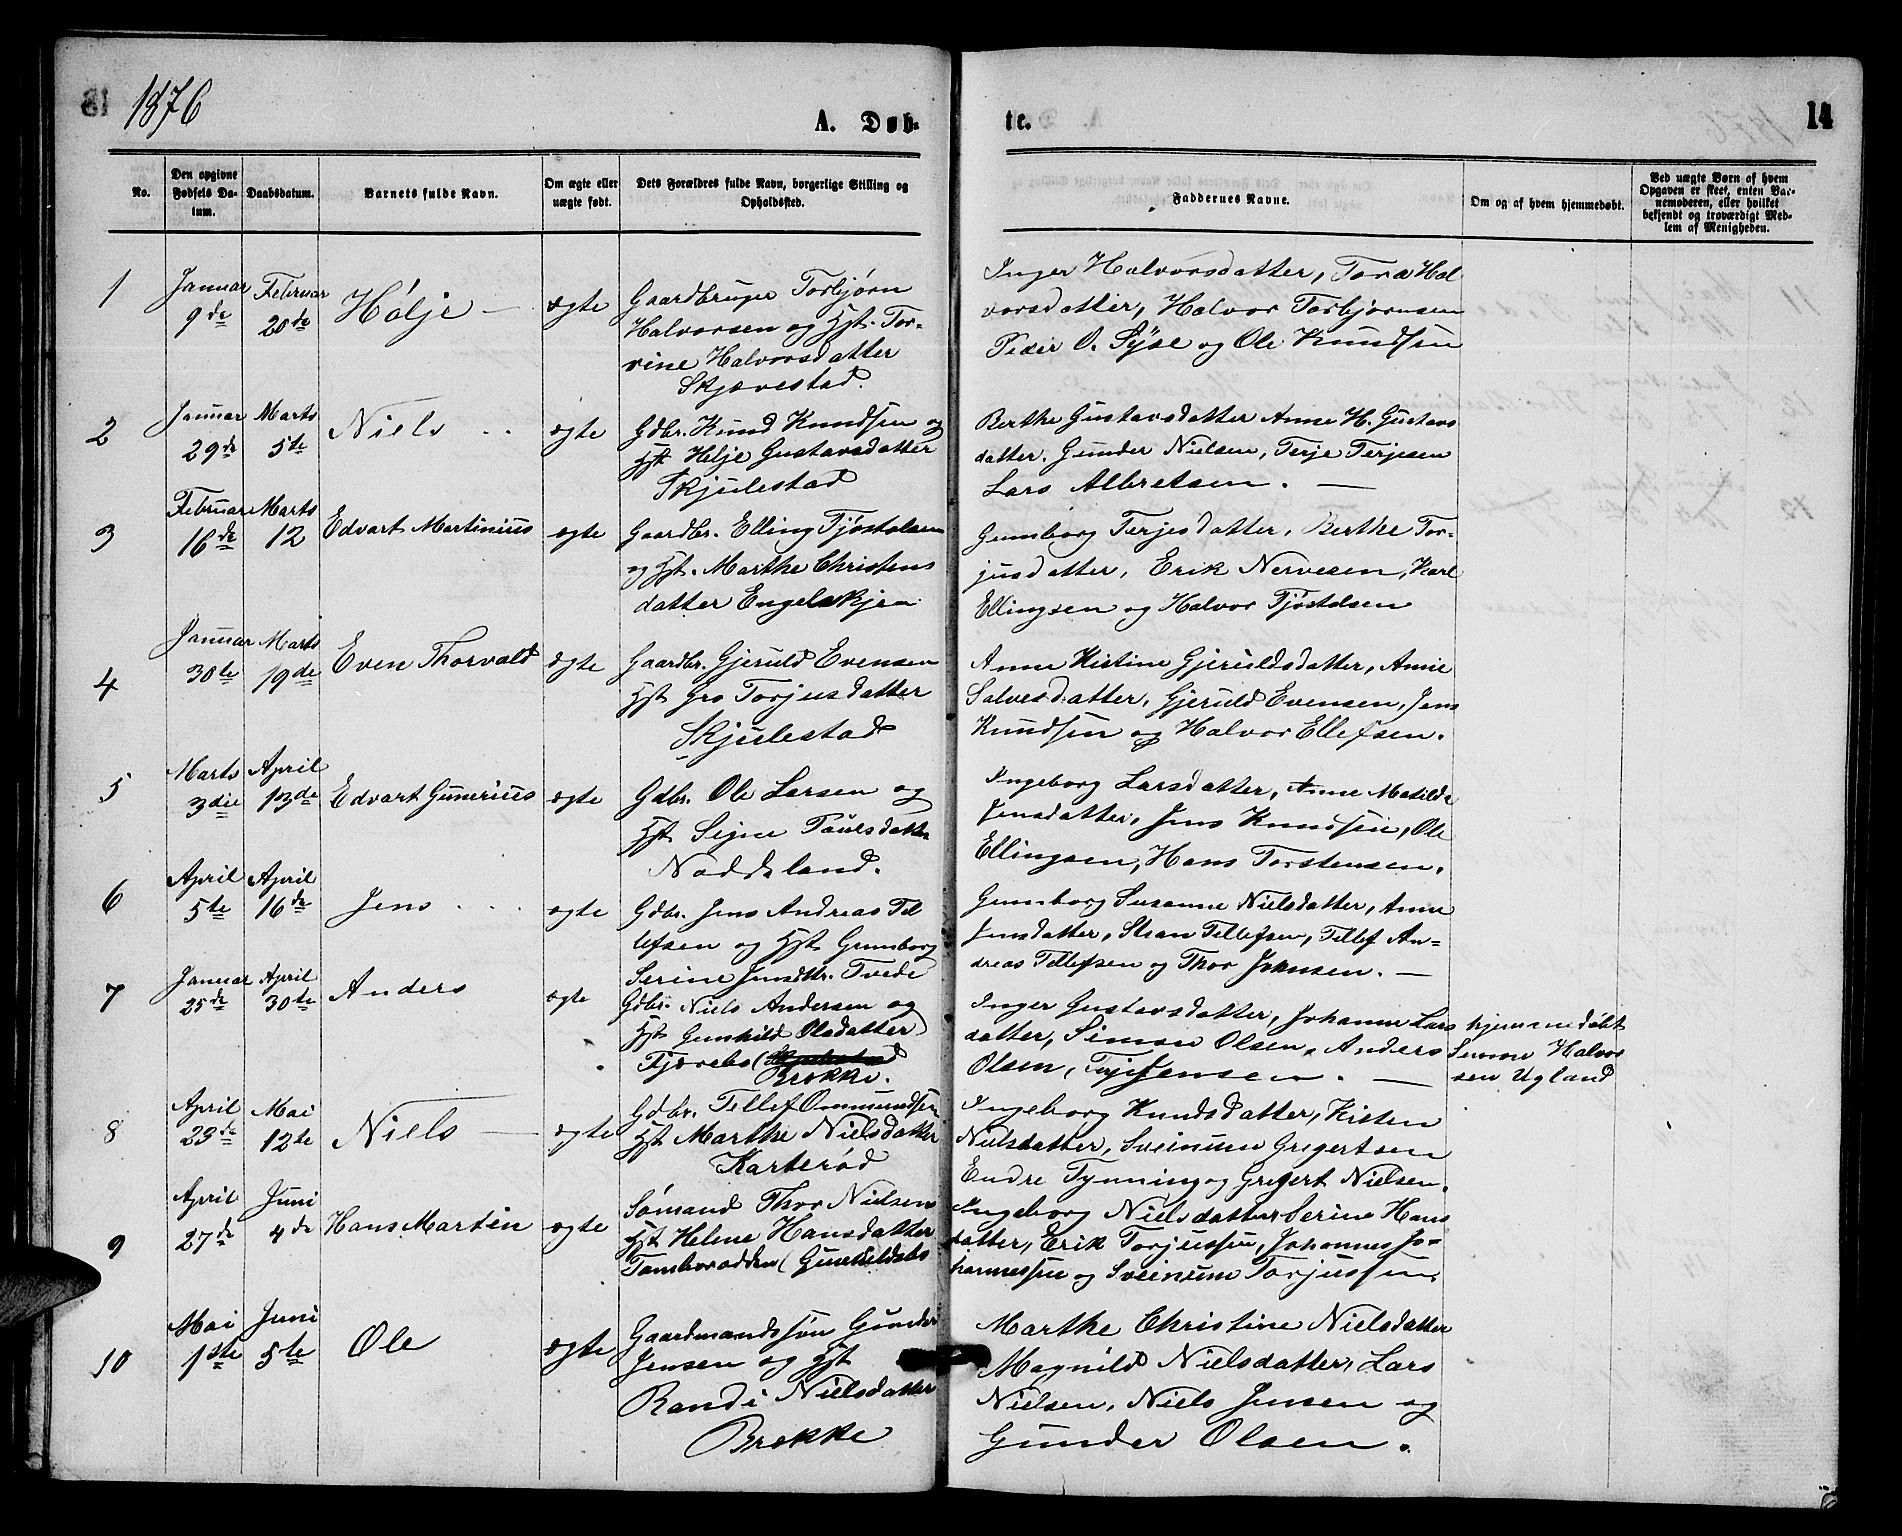 1876
A. Døb-
te.
14
No.
Den opgivne Fødsels Da-
tum.
Daabsdatum.
Barnets fulde Navn.
Om ægte eller
uægte født.
Dets Forældres fulde Navn, borgerlige Stilling og
Opholdssted.
Faddernes Navne.
Om og af hvem hjemmedøbt.
Ved uægte Børn af hvem
Opgaven er skeet, enten Bar-
nemoderen, eller hvilket
bekjendt og troværdigt Med-
lem af Menigheden.
1
Januar
9de
Februar
20de
Hølje
ægte
Gaardbruger Torbjørn
Halvorsen og Hst. Tor-
vine Halvorsdatter
Skjævestad.
Inger Halvorsdatter, Tora Hal
vorsdatter, Halvor Torbjørnsen
Peder O. Syse og Ole Knudsen
2
Januar
29de
Marts
5te
Niels
ægte
Gdbr. Knud Knudsen og
Hst Helje Gustavsdatter
Skjulestad
Berthe Gustavsdatter Anne H. Gustavs
datter. Gunder Nielsen, Terje Terjesen
Lars Albretsen.
3
Februar
16de
Marts
12
Edvart Martinius
ægte
Gaardbr. Elling Tjøstolsen
og Hst. Marthe Christens
datter Engelskjøn
Gunborg Terjesdatter, Berthe Tor-
jusdatter, Erik Nervesen, Karl
Ellingsen og Halvor Tjøstolsen
4
Januar
30te
Marts
19de
Even Thorvald
ægte
Gaardbr. Gjeruld Evensen
Hst Gro Torjusdatter
Skjulestad
Anne Kistine Gjeruldsdatter, Anne
Salvesdatter, Gjeruld Evensen, Jens
Knudsen og Halvor Ellefsen.
5
Marts
3die
April
13de
Edvart Gunerius
ægte
Gdbr. Ole Larsen og
Hst Signe Paulsdatter
Noddeland.
Ingeborg Larsdatter, Anne Matilde
Jensdatter, Jens Knudsen, Ole
Ellingsen, Hans Torstensen.
6
April
5te
April
16de
Jens
ægte
Gdbr. Jens Andreas Tel
lefsen og Hst Gunborg
Serine Jensdtr. Tvede
Gunborg Susanne Nielsdatter, Anne
Jensdatter, Stian Tellefsen, Tellef An-
dreas Tellefsen og Thor Johnsen.
7
Januar
25de
April
30te
Anders
ægte
Gdbr. Niels Andersen og
Hst Gunhild Olsdatter
Fjærebo
Brekke.
Inger Gustavsdatter, Johanne Lars
datter, Simon Olsen, Anders
Olsen, Terje Jensen.
hjemmedøbt
Halvor
sen Ugland
8
April
23de
Mai
12te
Niels
ægte
Gdbr. Tellef Ommundsen
Hst Marthe Nielsdatter
Karterød
Ingeborg Knudsdatter, Kisten
Nielsdatter, Sveinum Gregertsen
Endre Tynning og Gregert Nielsen.
9
April
27de
Juni
4de
Hans Martin
ægte
Sømand Thor Nielsen
Hst Helene Hansdatter
Tamborodden (Gunhildsbo
Ingeborg Nielsdatter Serine Hans
datter, Erik Torjussen, Johannes Jo-
hannessen og Sveinum Torjussen.
10
Mai
1ste
Juni
5te
Ole
ægte
Gaardmandssøn Gunder
Jensen og Hst
Randi Nielsdatter
Brekke
Marthe Christine Nielsdatter
Magnild Nielsdatter, Lars
Nielsen, Niels Jensen og
Gunder Olsen.